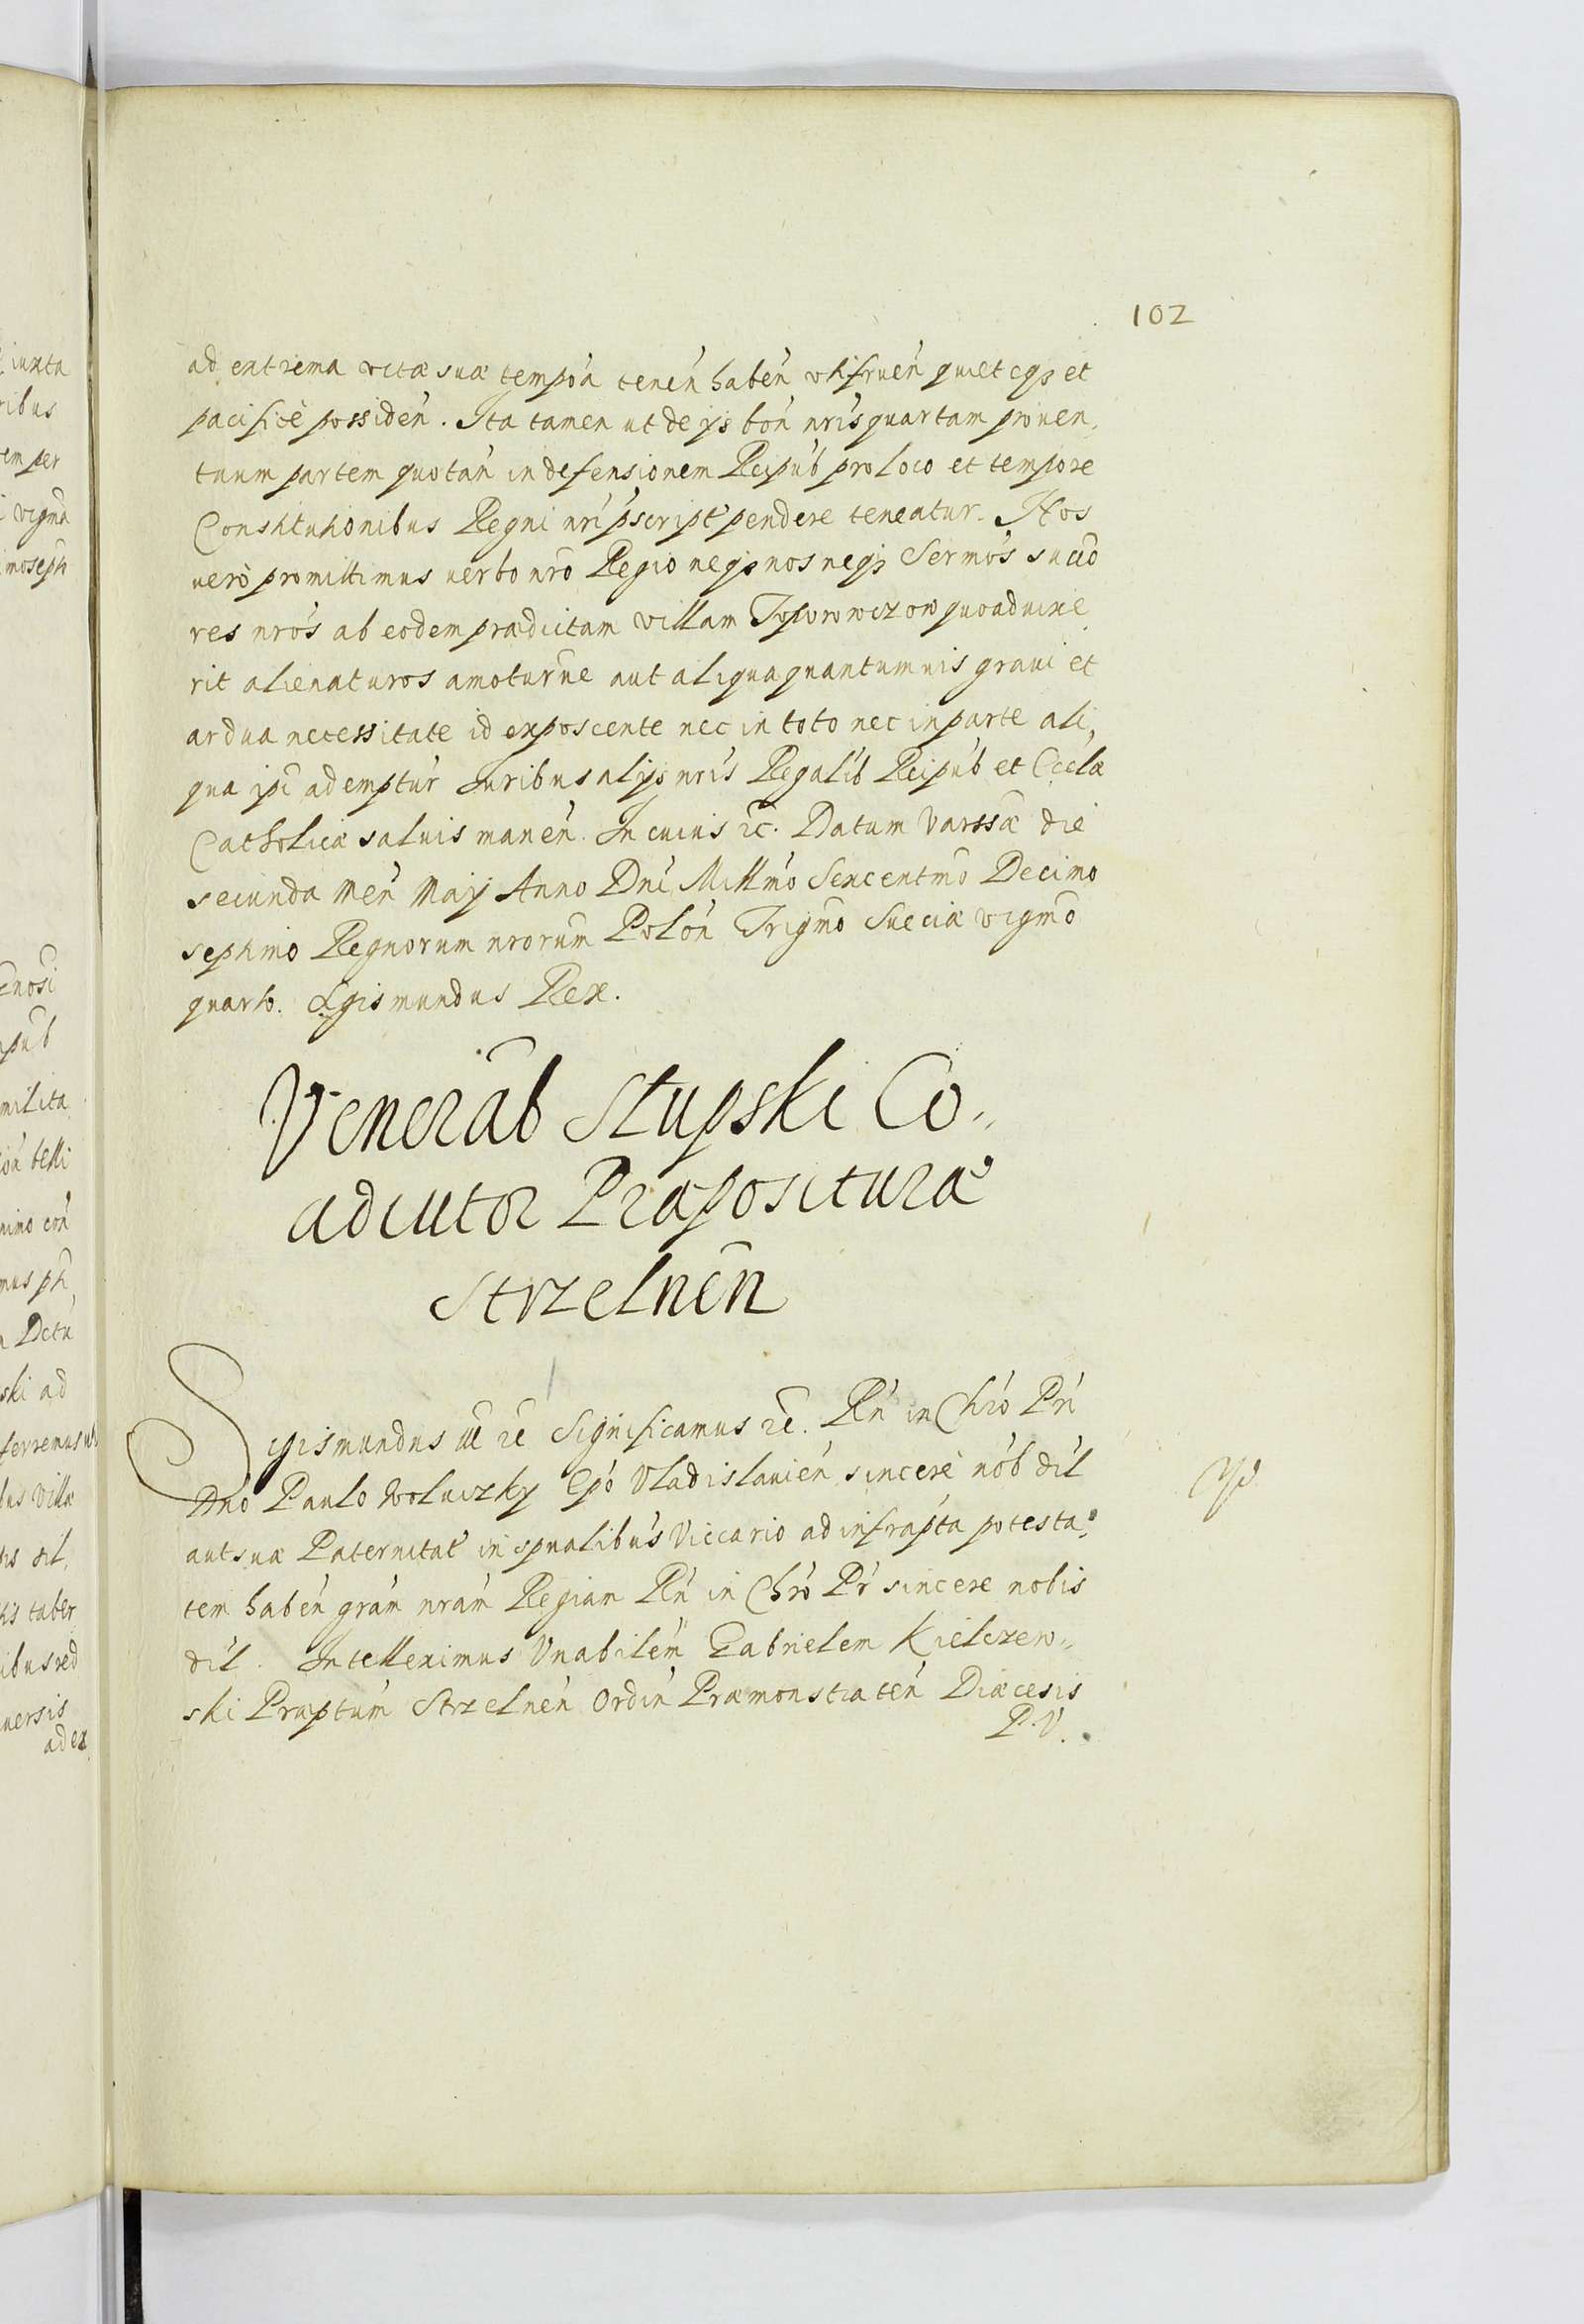 102
ad extrema vitæ suæ tempóa tenén habén vtifruén quiet eqз et
pacificè possidén. Ita tamen ut de ijs bón nrís quartam prouen,
tuum partem quotán in defensionem Reipúb pro loco et tempore
Constitutionibus Regni nrí pscript pendere teneatur. Nos
uerò promittimus uerbo nro Regio neqз nos neqз Sermós succó
res nrós ab eodem prædictam villam Toporowczow quoad uixe
rit alienaturos amoturȗe aut aliqua quantumuis graui et
ardua necessitate id exposcente nec in toto nec in parte ali,
qua ipi ademptúr Iuribus alijs nrís Regalíb Reipúb et Ecclæ
Catholicæ saluis manén. In cuius rc. Datum Varssæ die
secunda Men Maij Anno Dní Millmo Sexcentmo Decimo
septimo Regnorum nrorum Polón Trigmo Sueciæ vigmo
quarto. Sigismundus Rex.
Veneráb Słupski Co,,
adiutor Præposituræ
Strzelnen
Sigismundus III rc Significamus rc. Rń in Chró Prí
Dno Paulo Wołuczky Epó Vladislauién sincerè nób díl
aut suæ Paternitat in spualibús Viccario ad infrapta potesta,
tem habén grám nrám Regiam Rń in Chró Pr sincere nobis
díl. Intelleximus Vnabilém Gabrielem Kiełczew,,
ski Præptúm Strzelnén Ordín Præmonstratén Diæcesis
P. V.